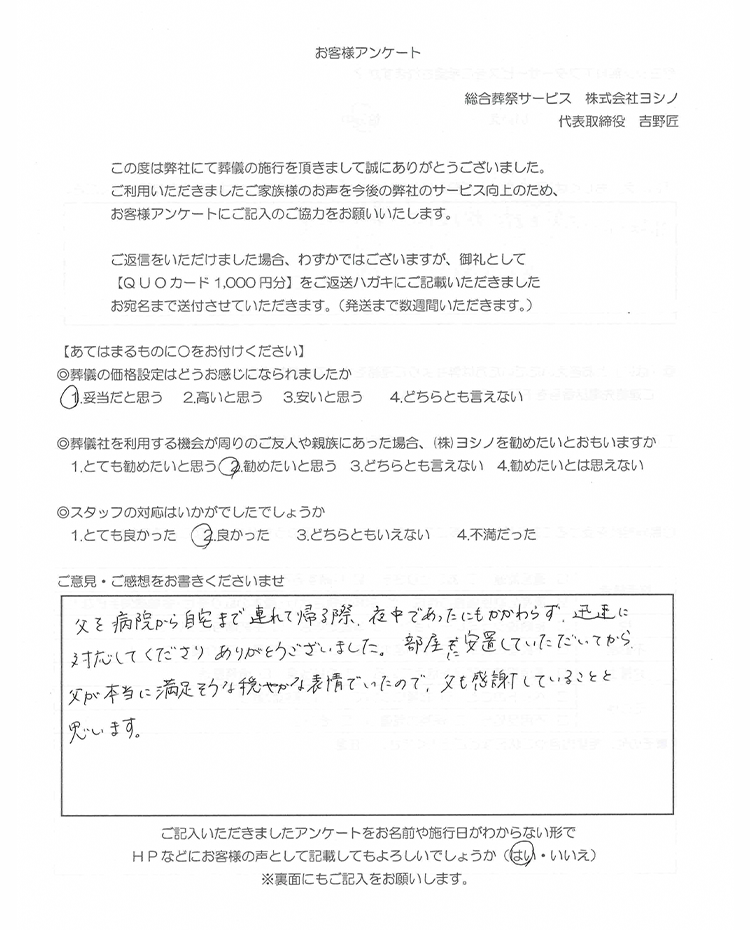 お客様アンケート
総合葬祭サービス　株式会社ヨシノ
代表取締役　吉野匠
この度は弊社にて葬儀の施行を頂きまして誠にありがとうございました。
ご利用いただきましたご家族様のお声を今後の弊社のサービス向上のため、
お客様アンケートにご記入のご協力をお願いいたします。
ご返信をいただけました場合、わずかではございますが、御礼として
【QUOカード1,000円分】をご返送ハガキにご記載いただきました
お宛名まで送付させていただきます。（発送まで数週間いただきます。）
【あてはまるものに○をお付けください】
◎葬儀の価格設定はどうお感じになられましたか
1.妥当だと思う　2.高いと思う　3.安いと思う　4.どちらとも言えない
◎葬儀社を利用する機会が周りのご友人や親族にあった場合、㈱ヨシノを勧めたいとおもいますか
1.とても勧めたいと思う　2.勧めたいと思う　3.どちらとも言えない　4.勧めたいとは思えない
◎スタッフの対応はいかがでしたでしょうか
1.とても良かった　2.良かった　3.どちらともいえない　4.不満だった
ご意見・ご感想をお書きくださいませ
父を病院から自宅まで連れて帰る際、夜中であったにもかかわらず、迅速に
対応してくださりありがとうございました。部屋に安置していただいてから、
父が本当に満足そうな穏やかな表情でいたので、父も感謝していることと
思います。
ご記入いただきましたアンケートをお名前や施行日がわからない形で
HPなどにお客様の声として記載してもよろしいでしょうか（はい・いいえ）
※裏面にもご記入をお願いします。